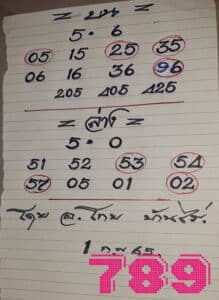 = บน =
5 - 6
05 15 25 35
06 16 36 96
205 405 425
= ล่าง =
5 - 0
51 52 53 54
57 05 01 02
โดย อ. โทน บ้านไร่.
1 กพ 65.
789